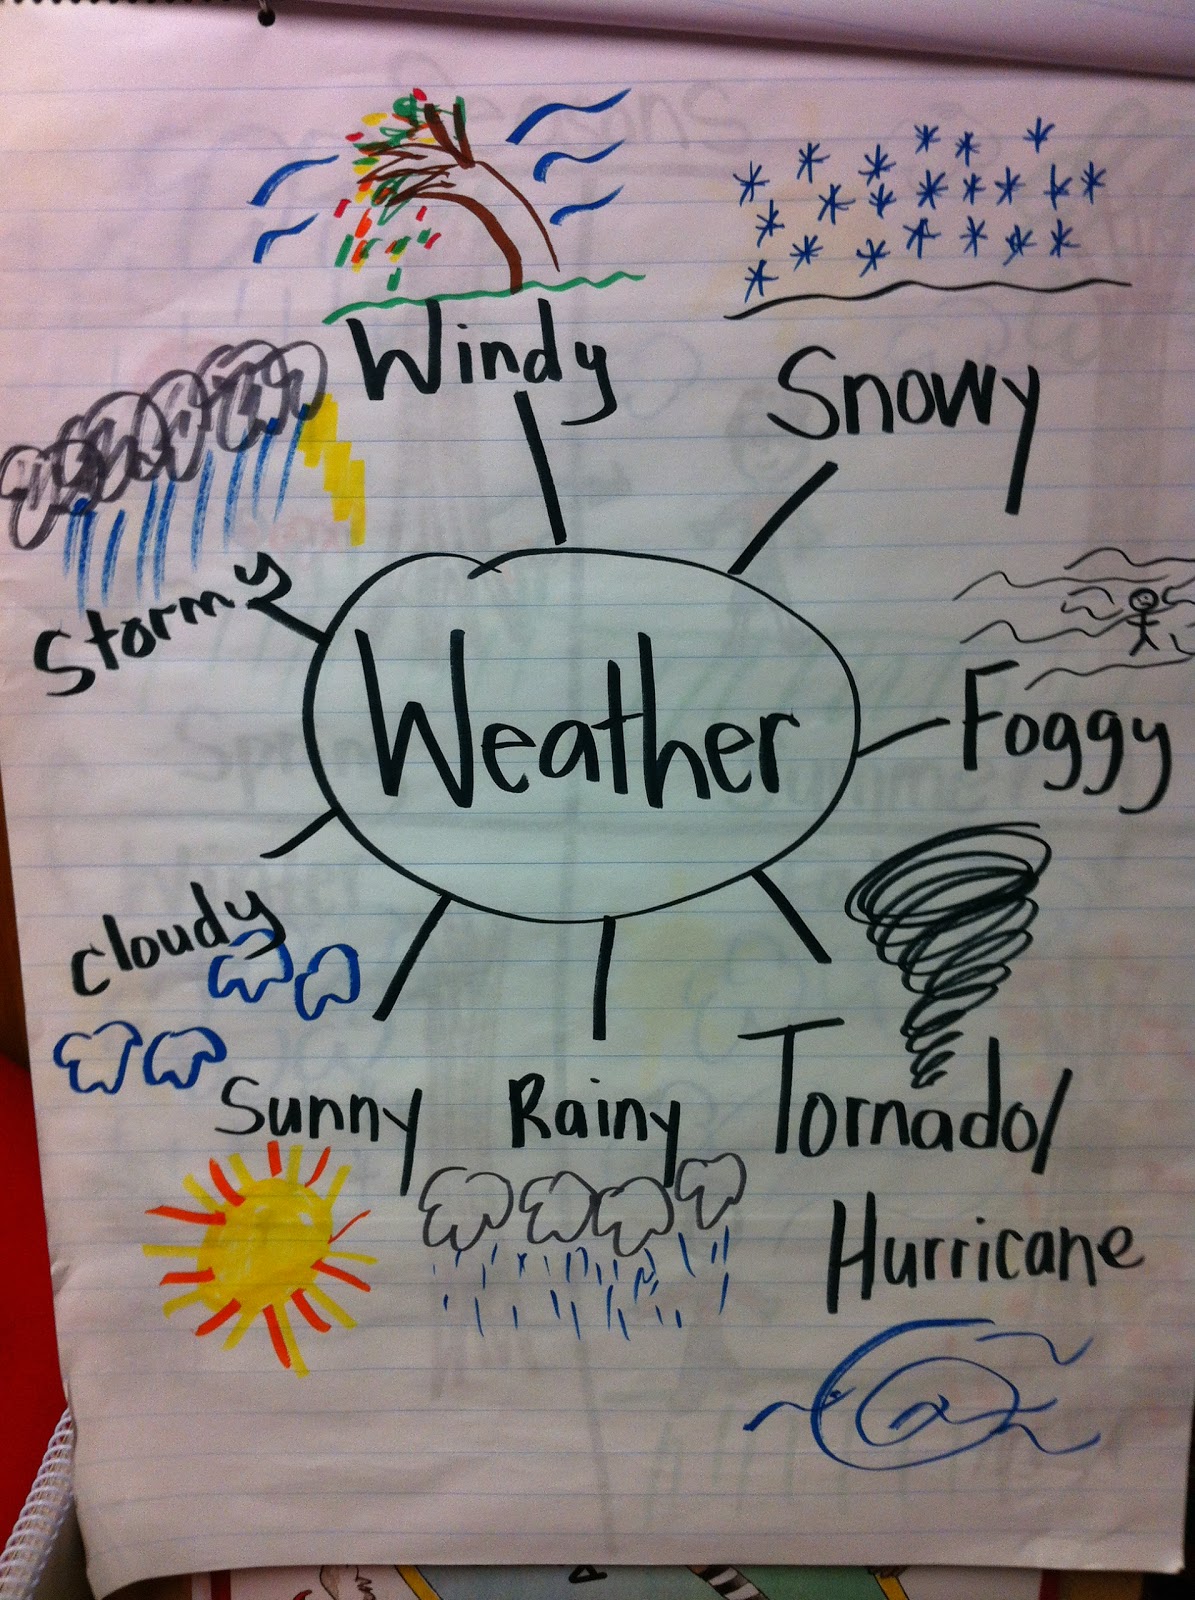 Windy
Snowy
Stormy
Weather
Foggy
cloudy
Sunny
Rainy
Tornado/
Hurricane